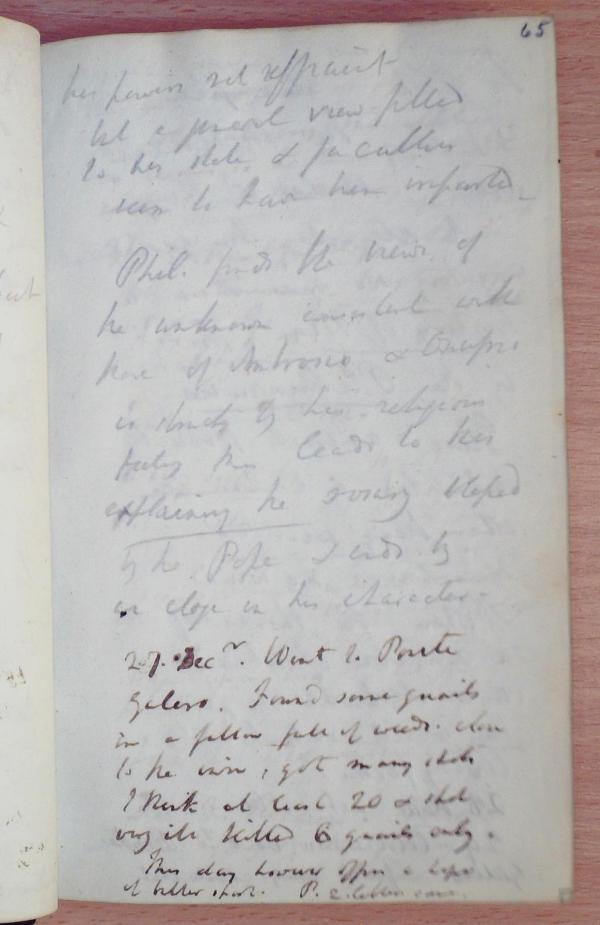 65
his powers not sufficient
but a general view fitted
to his state & faculties
seem to have been imparted
Phil. finds the views of
the unknown consistent with
those of Ambrosio & Onuphrio
is struck by his religious
feeling this leads to his
explaining the rosary blessed
by the Pope & ends by
an eloge on his character.
27. Decr. Went to Ponte
Galera. Found some quails
in a fallow full of weeds close
to the inn, got many shots
I think at least 20 & shot
very ill killed 6 quails only.
This day however offers a hope
of better sport. P.